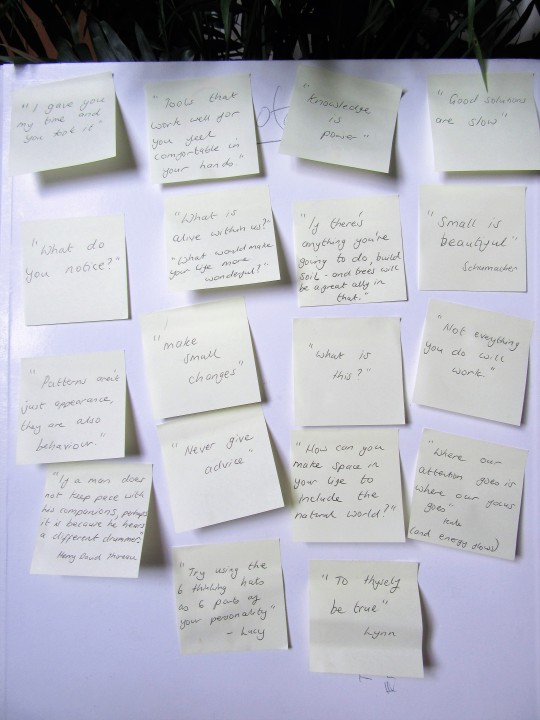 "I gave you
my time and
you took it"
"Tools that
work well for
you feel
comfortable in
your hands."
"Knowledge
is
power"
"Good solutions
are slow"
"What do
you notice?"
"What is
alive within us?"
"What would make
your life more
wonderful?"
"If there's
anything you're
going to do, build
soil - and trees will
be a great ally in
that."
"Small is
beautiful"
Schumacher
"Patterns aren't
just appearance,
they are also
behaviour."
"make
small
changes"
"What is
this?"
"Not everything
you do will
work."
"If a man does
not keep pace with
his companions, perhaps
it is because he hears
a different drummer."
Henry David Thoreau
"Never give
advice"
"How can you
make space in
your life to
include the
natural world?"
"Where our
attention goes is
where our focus
goes"
(and energy flows)
"Try using the
6 thinking hats
as 6 parts of
your personality"
- Lucy
"To thyself
be true"
Lynn